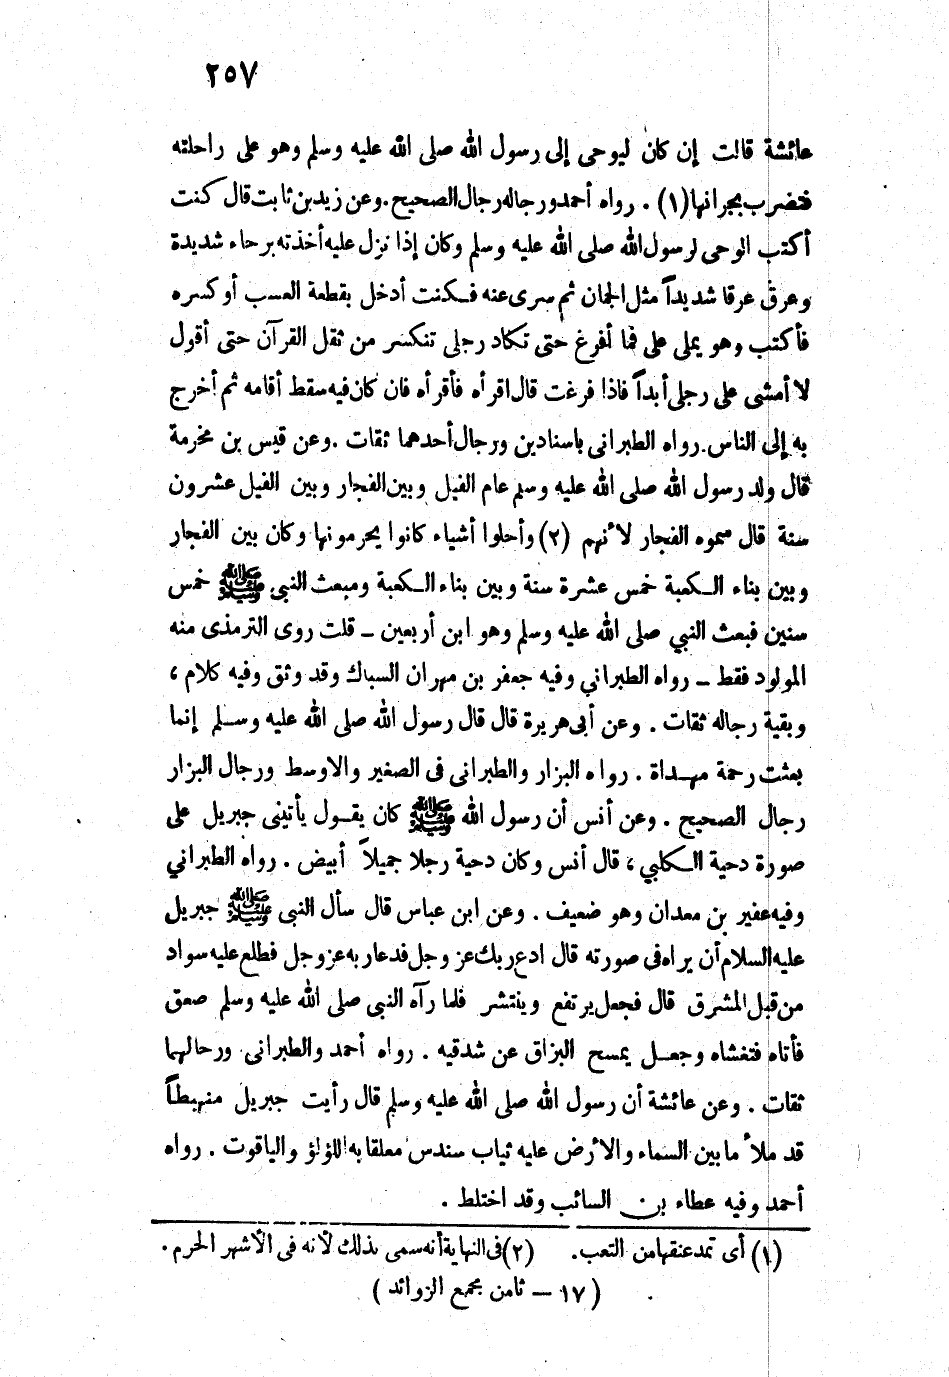 ٢٥٧
عائشة قالت إن كان ليوحى إلى رسول الله صلى الله عليه وسلم وهو على راحلته
فتضرب بجرانها (١) . رواه أحمد ورجاله رجال الصحيح . وعن زيد بن ثابت قال كنت
أكتب الوحى لرسول الله صلى الله عليه وسلم وكان إذا نزل عليه أخذته برحاء شديدة
وعرق عرقا شديداً مثل الجمان ثم سرى عنه فكنت أدخل بقطعة العسب أو كسره
فأكتب وهو يملى على فما أفرغ حتى تكاد رجلى تنكسر من ثقل القرآن حتى أقول
لا أمشى على رجلى أبداً فاذا فرغت قال اقرأه فأقرأه فان كان فيه سقط أقامه ثم أخرج
به إلى الناس . رواه الطبرانى باسنادين ورجال أحدهما ثقات . وعن قيس بن مخرمة
قال ولد رسول الله صلى الله عليه وسلم عام الفيل وبين الفجار وبين الفيل عشرون
سنة قال سموه الفجار لأنهم (٢) وأحلوا أشياء كانوا يحرمونها وكان بين الفجار
وبين بناء الكعبة خمس عشرة سنة وبين بناء الكعبة ومبعث النبى ﷺ خمس
سنين فبعث النبي صلى الله عليه وسلم وهو ابن أربعين ـ قلت روى الترمذى منه
المولود فقط ـ رواه الطبراني وفيه جعفر بن مهران السباك وقد وثق وفيه كلام ،
وبقية رجاله ثقات . وعن أبى هريرة قال قال رسول الله صلى الله عليه وسلم إنما
بعثت رحمة مهداة . رواه البزار والطبرانى فى الصغير والاوسط ورجال البزار
رجال الصحيح . وعن أنس أن رسول الله ﷺ كان يقول يأتينى جبريل على
صورة دحية الكلبي ، قال أنس وكان دحية رجلا جميلاً أبيض . رواه الطبراني
وفيه عفير بن معدان وهو ضعيف . وعن ابن عباس قال سأل النبى ﷺ جبريل
عليه السلام أن يراه فى صورته قال ادع ربك عز وجل فدعا ربه عز وجل فطلع عليه سواد
من قبل المشرق قال فجعل يرتفع وينتشر فلما رآه النبى صلى الله عليه وسلم صعق
فأتاه فتغشاه وجعل يمسح البزاق عن شدقيه . رواه أحمد والطبرانى ورجالهما
ثقات . وعن عائشة أن رسول الله صلى الله عليه وسلم قال رأيت جبريل منهبطاً
قد ملأ ما بين السماء والأرض عليه ثياب سندس معلقا به اللؤلؤ والياقوت . رواه
أحمد وفيه عطاء بن السائب وقد اختلط .
(١) أى تمد عنقها من التعب. (٢) فى النهاية أنه سمى بذلك لأنه فى الأشهر الحرم .
(١٧ ـ ثامن مجمع الزوائد )